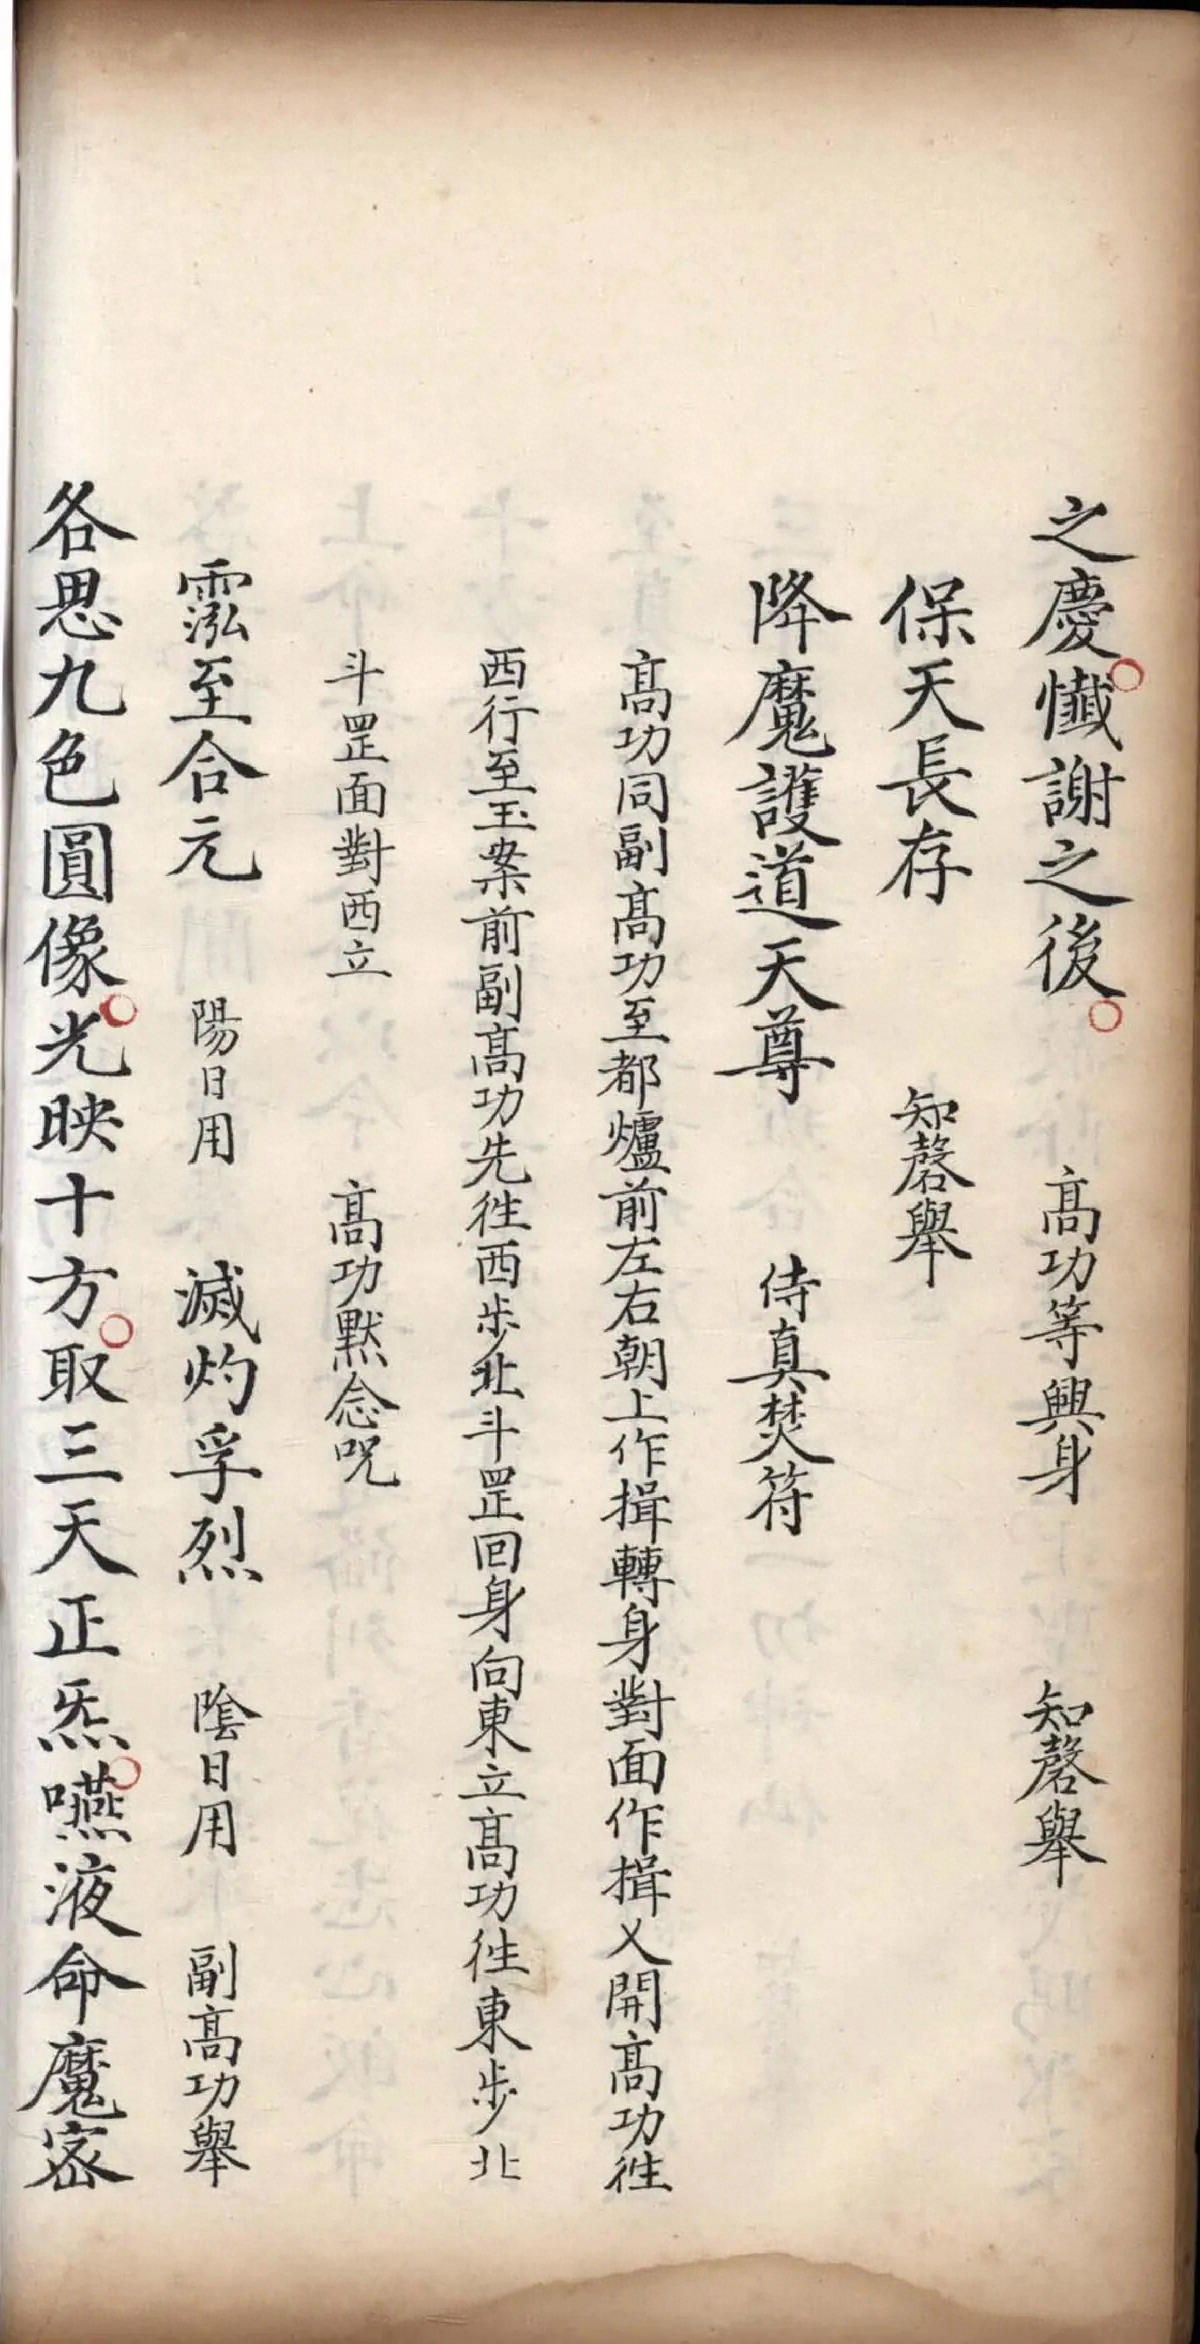 之慶懺謝之後 高功等興身 知磬舉
保天長存 知磬舉
降魔護道天尊 侍真焚符
高功同副高功至都爐前左右朝上作揖轉身對面作揖乂開高功徃
西行至玉案前副高功先徃西步北斗罡回身向東立高功徃東步北
斗罡面對西立 高功默念呪
霐至合元 陽日用 滅灼孚烈 陰日用 副高功舉
各思九色圓像光映十方取三天正炁嚥液命魔密